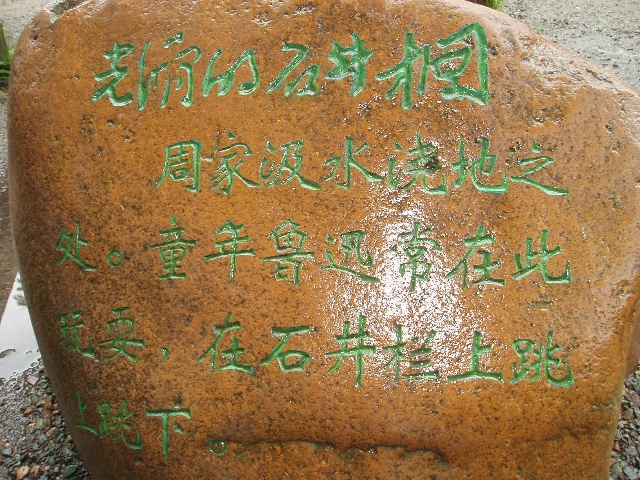 光滑的石井栏
周家汲水浇地之
处。童年鲁迅常在此
玩耍，在石井栏上跳
上跳下。